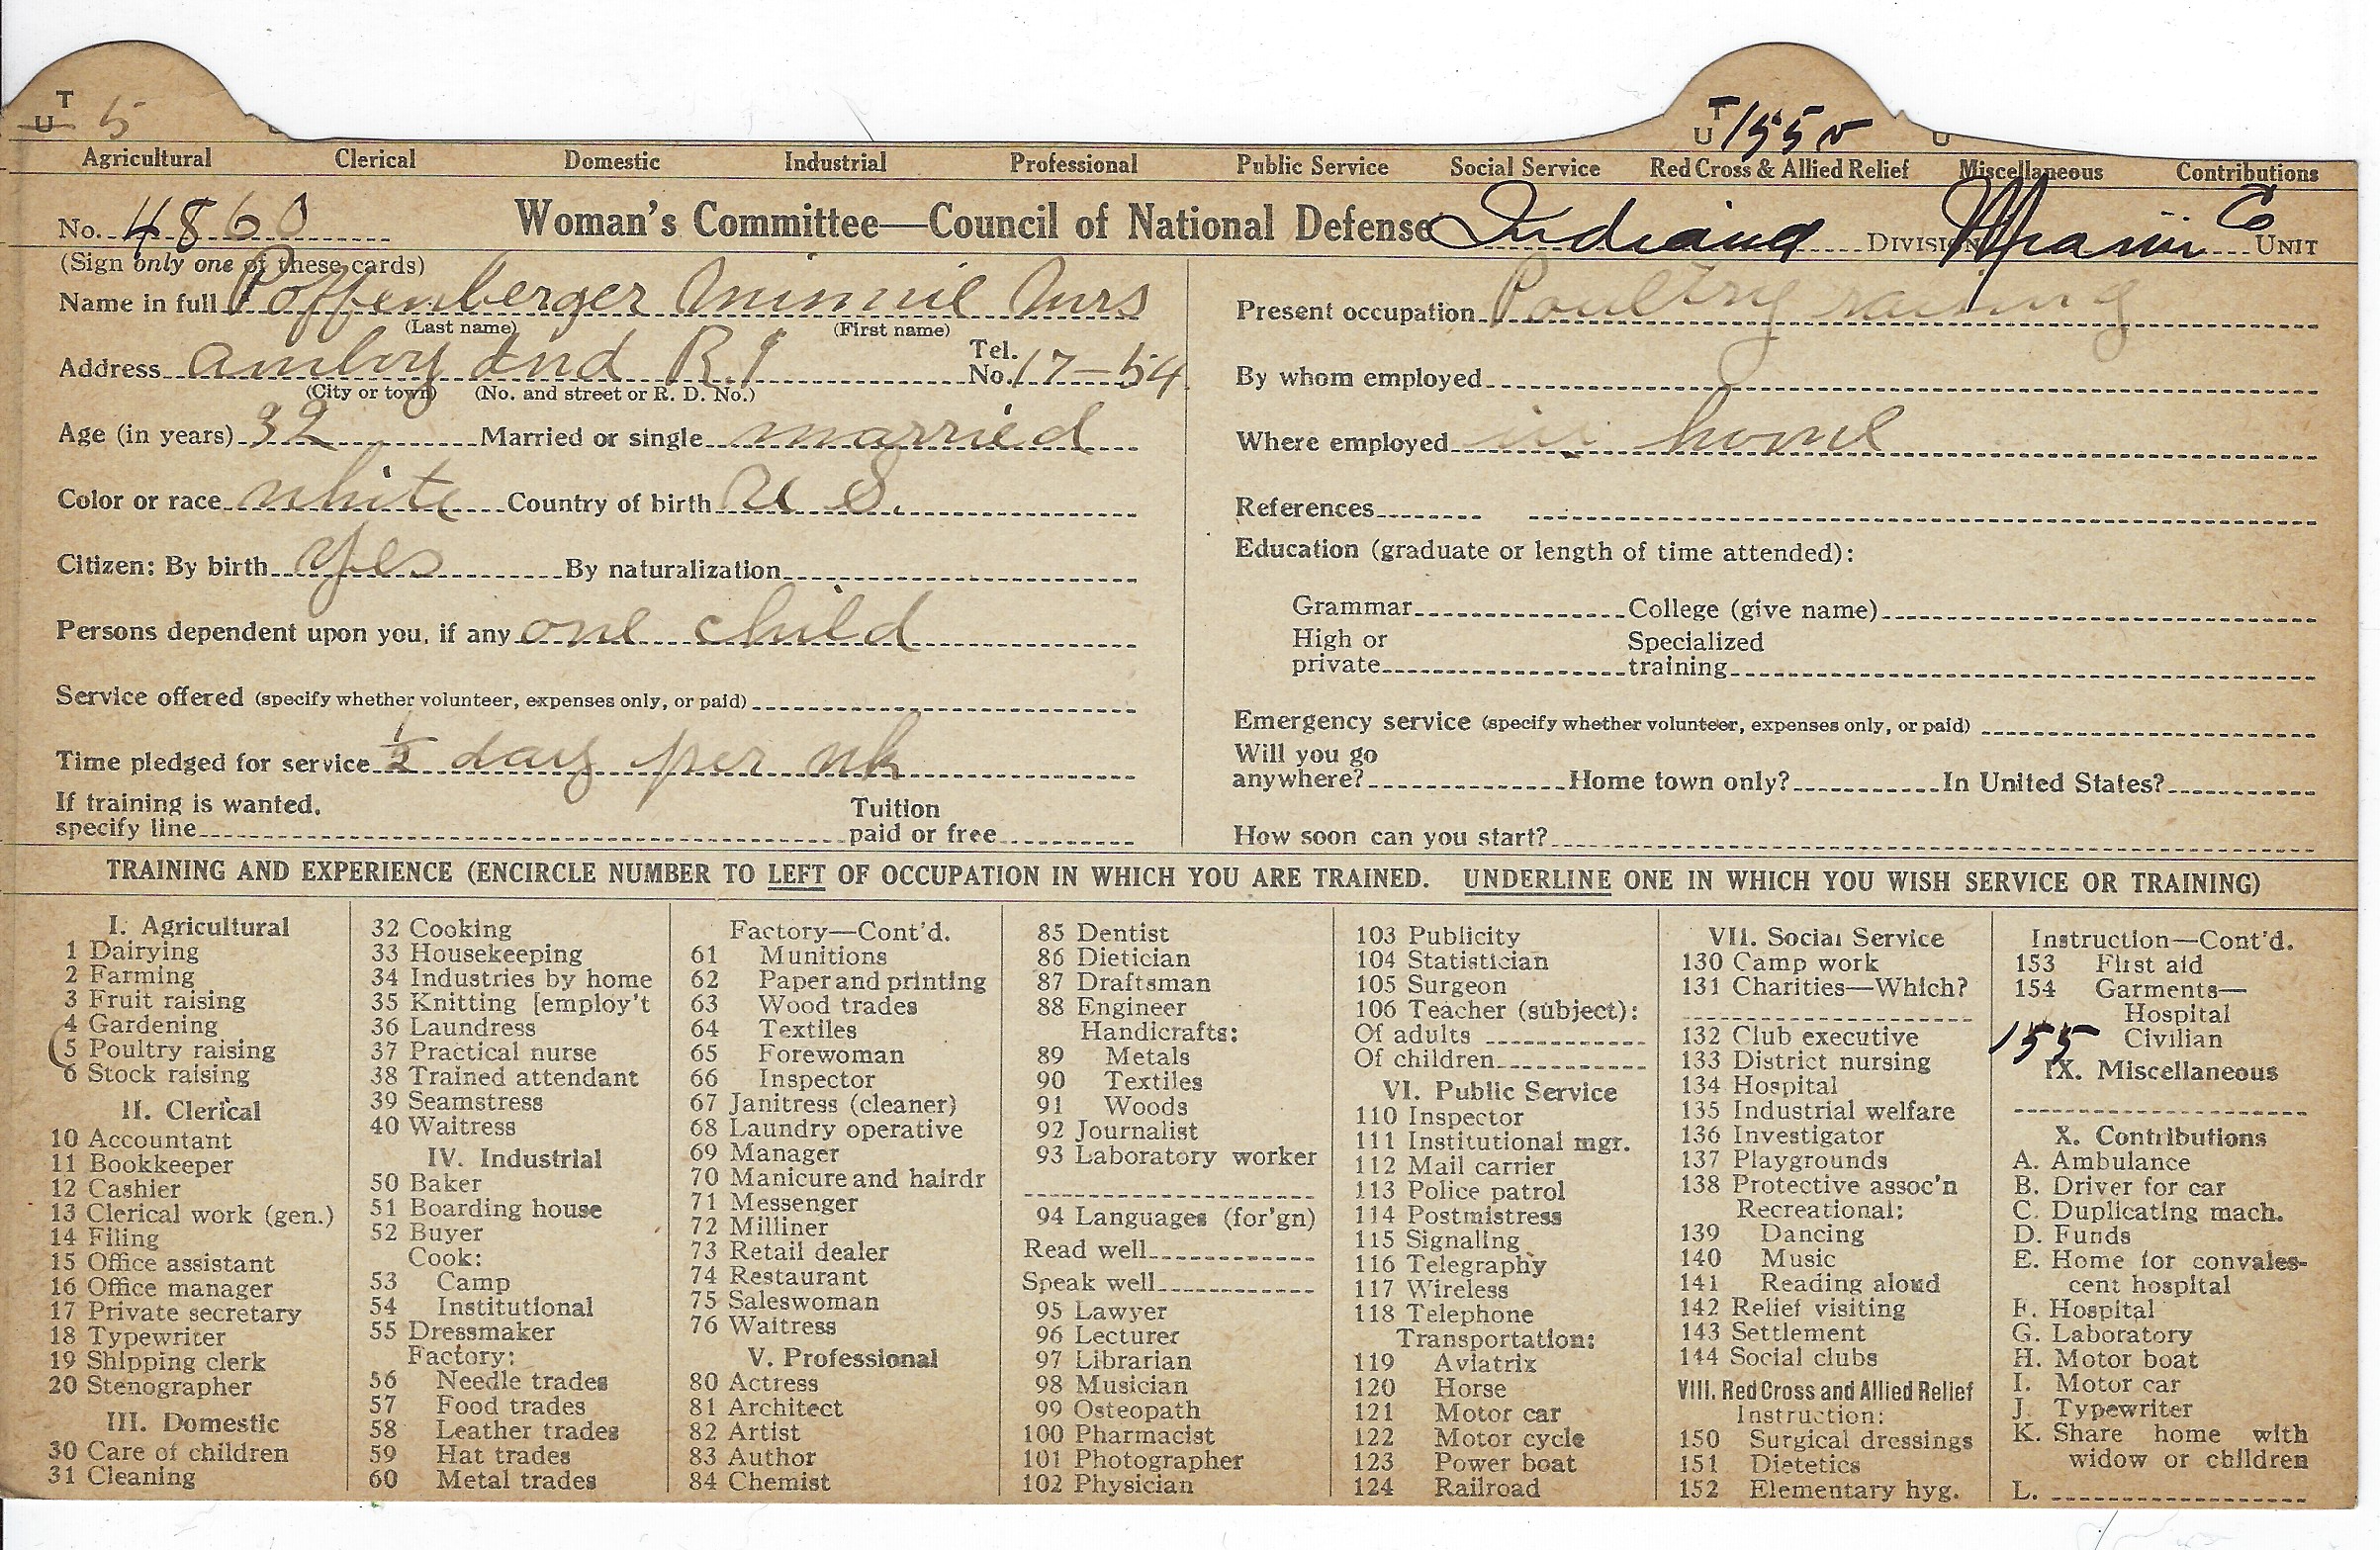 T
U 5
T
U 155 v
U
Agricultural Clerical Domestic Industrial Professional Public Service Social Service Red Cross & Allied Relief Miscellaneous Contributions
No. 4860 Woman's Committee—Council of National Defense Indiana DIVISION Miami Co UNIT
(Sign only one of these cards)
Name in full Poffenberger Minnie Mrs
(Last name) (First name)
Address Amboy Ind R.1 Tel. No. 17-54
(City or town) (No. and street or R. D. No.)
Age (in years) 32 Married or single married
Color or race white Country of birth U S.
Citizen: By birth yes By naturalization
Persons dependent upon you, if any one child
Service offered (specify whether volunteer, expenses only, or paid)
Time pledged for service 1/2 day per wk
If training is wanted, Tuition
specify line paid or free
Present occupation Poultry raising
By whom employed
Where employed in home
References
Education (graduate or length of time attended):
Grammar College (give name)
High or Specialized
private training
Emergency service (specify whether volunteer, expenses only, or paid)
Will you go
anywhere? Home town only? In United States?
How soon can you start?
TRAINING AND EXPERIENCE (ENCIRCLE NUMBER TO LEFT OF OCCUPATION IN WHICH YOU ARE TRAINED. UNDERLINE ONE IN WHICH YOU WISH SERVICE OR TRAINING)
I. Agricultural
1 Dairying
2 Farming
3 Fruit raising
4 Gardening
5 Poultry raising
6 Stock raising
II. Clerical
10 Accountant
11 Bookkeeper
12 Cashier
13 Clerical work (gen.)
14 Filing
15 Office assistant
16 Office manager
17 Private secretary
18 Typewriter
19 Shipping clerk
20 Stenographer
III. Domestic
30 Care of children
31 Cleaning
32 Cooking
33 Housekeeping
34 Industries by home
35 Knitting [employ't
36 Laundress
37 Practical nurse
38 Trained attendant
39 Seamstress
40 Waitress
IV. Industrial
50 Baker
51 Boarding house
52 Buyer
Cook:
53 Camp
54 Institutional
55 Dressmaker
Factory:
56 Needle trades
57 Food trades
58 Leather trades
59 Hat trades
60 Metal trades
Factory—Cont'd.
61 Munitions
62 Paper and printing
63 Wood trades
64 Textiles
65 Forewoman
66 Inspector
67 Janitress (cleaner)
68 Laundry operative
69 Manager
70 Manicure and hairdr
71 Messenger
72 Milliner
73 Retail dealer
74 Restaurant
75 Saleswoman
76 Waitress
V. Professional
80 Actress
81 Architect
82 Artist
83 Author
84 Chemist
85 Dentist
86 Dietician
87 Draftsman
88 Engineer
Handicrafts:
89 Metals
90 Textiles
91 Woods
92 Journalist
93 Laboratory worker
94 Languages (for'gn)
Read well
Speak well
95 Lawyer
96 Lecturer
97 Librarian
98 Musician
99 Osteopath
100 Pharmacist
101 Photographer
102 Physician
103 Publicity
104 Statistician
105 Surgeon
106 Teacher (subject):
Of adults
Of children
VI. Public Service
110 Inspector
111 Institutional mgr.
112 Mail carrier
113 Police patrol
114 Postmistress
115 Signaling
116 Telegraphy
117 Wireless
118 Telephone
Transportation:
119 Aviatrix
120 Horse
121 Motor car
122 Motor cycle
123 Power boat
124 Railroad
VII. Social Service
130 Camp work
131 Charities—Which?
132 Club executive
133 District nursing
134 Hospital
135 Industrial welfare
136 Investigator
137 Playgrounds
138 Protective assoc'n
Recreational:
139 Dancing
140 Music
141 Reading aloud
142 Relief visiting
143 Settlement
144 Social clubs
VIII. Red Cross and Allied Relief
Instruction:
150 Surgical dressings
151 Dietetics
152 Elementary hyg.
Instruction—Cont'd.
153 First aid
154 Garments—
Hospital
155 Civilian
IX. Miscellaneous
X. Contributions
A. Ambulance
B. Driver for car
C. Duplicating mach.
D. Funds
E. Home for convales-
cent hospital
F. Hospital
G. Laboratory
H. Motor boat
I. Motor car
J. Typewriter
K. Share home with
widow or children
L.